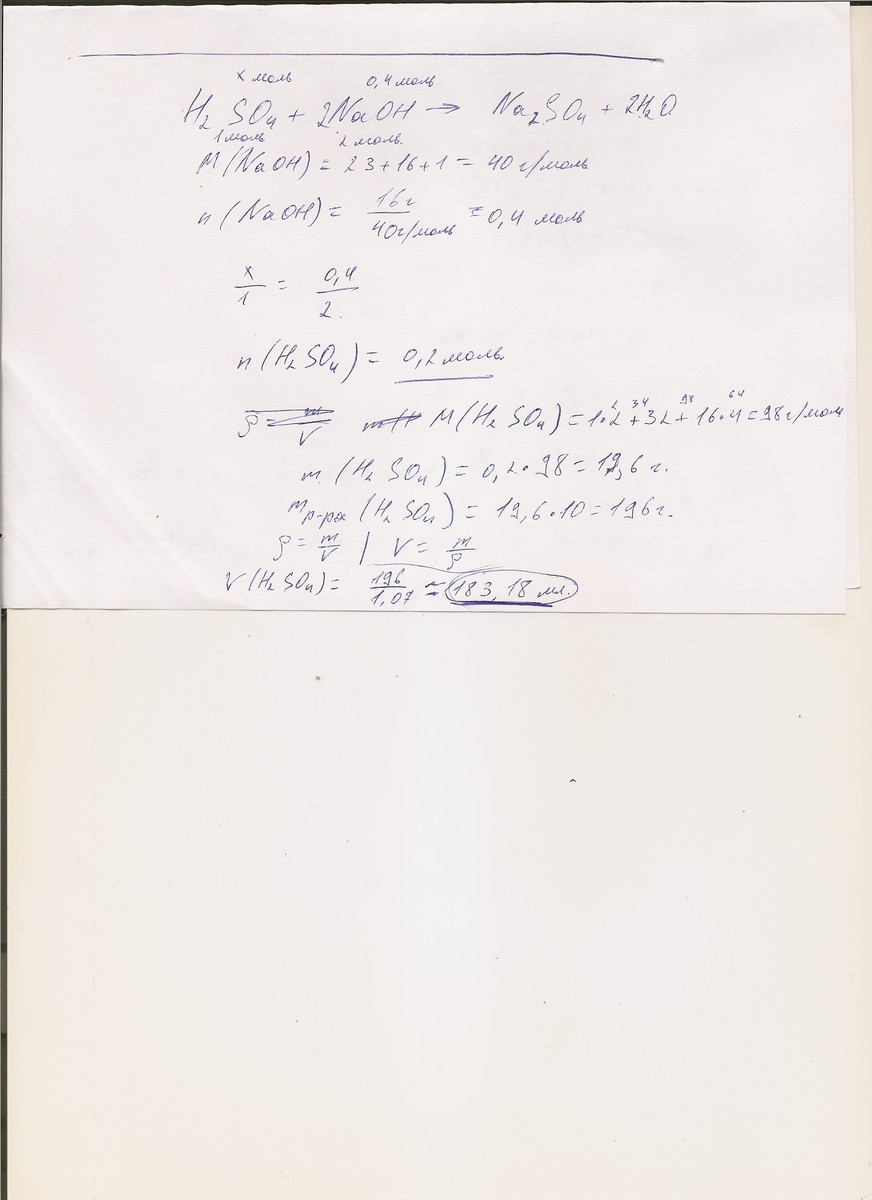 x моль 0,4 моль
H₂SO₄ + 2NaOH → Na₂SO₄ + 2H₂O
1 моль 2 моль.
M (NaOH) = 23+16+1 = 40 г/моль
n (NaOH) = 16г / 40г/моль = 0,4 моль
x/1 = 0,4/2.
n (H₂SO₄) = 0,2 моль.
ρ = m/V M (H₂SO₄) = 1·2+32+16·4 = 98 г/моль
2 34 98 64
m (H₂SO₄) = 0,2·98 = 19,6 г.
m р-ра (H₂SO₄) = 19,6·10 = 196 г.
ρ = m/V | V = m/ρ
V (H₂SO₄) = 196/1,07 ≈ 183,18 мл.